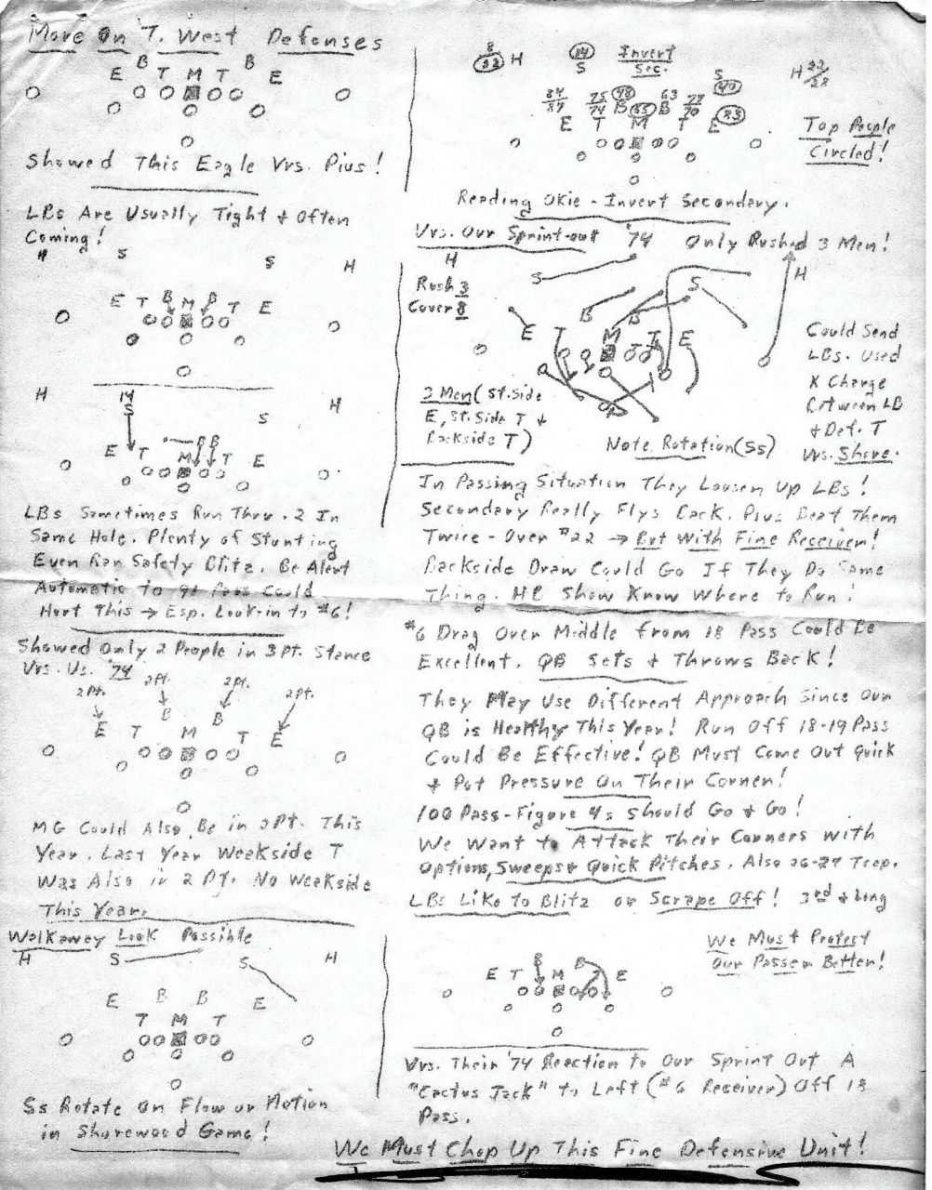 More On T. West Defenses
B B
E T M T E
Showed This Eagle Vrs. Pius!
LBs Are Usually Tight & Often
Coming!
H S S H
E T B M B T E
H 14 S H
S
B B
E T M T E
LBs Sometimes Run Thru. 2 In
Same Hole. Plenty of Stunting
Even Ran Safety Blitz. Be Alert
Automatic to 91 Pass Could
Hurt This → Esp. Look-in to #6!
Showed Only 2 People in 3 Pt. Stance
Vrs. Us. '74
2 Pt. 2 Pt. 2 Pt. 2 Pt.
B B
E T M T E
MG Could Also Be in 2 Pt. This
Year. Last Year Weakside T
Was Also in 2 Pt. No Weakside
This Year.
Walkaway Look Possible
H S S H
E B B E
T M T
Ss Rotate On Flow or Motion
in Shorewood Game!
8
22 H 14 S Invert Sec. S 40 H 22/28
84/87 75/74 48 B 55 B 63 77/70 83
E T M T E
Top People
Circled!
Reading Okie - Invert Secondary.
Vrs. Our Sprint-out '74 Only Rushed 3 Men!
H S S H
Rush 3
Cover 8
B B
E T M T E
Could Send
LBs. Used
X Charge
Between LB
& Def. T
Vrs. Shore.
3 Men (St. Side
E, St. Side T &
Backside T)
Note Rotation (Ss)
In Passing Situation They Loosen Up LBs!
Secondary Really Flys Back. Pius Beat Them
Twice - Over #22 → But With Fine Receiver!
Backside Draw Could Go If They Do Same
Thing. HB Show Know Where to Run.
#6 Drag Over Middle from 18 Pass Could Be
Excellent. QB Sets & Throws Back!
They May Use Different Approach Since Our
QB is Healthy This Year! Run Off 18-19 Pass
Could Be Effective! QB Must Come Out Quick
& Put Pressure On Their Corner!
100 Pass-Figure 4s Should Go & Go!
We Want to Attack Their Corners with
Options, Sweeps & Quick Pitches. Also 26-27 Trap.
LBs Like To Blitz or Scrape Off! 3rd & Long
We Must Protect
Our Passer Better!
B B
E T M T E
Vrs. Their '74 Reaction to Our Sprint Out A
"Cactus Jack" to Left (#6 Receiver) Off 18
Pass.
We Must Chop Up This Fine Defensive Unit!